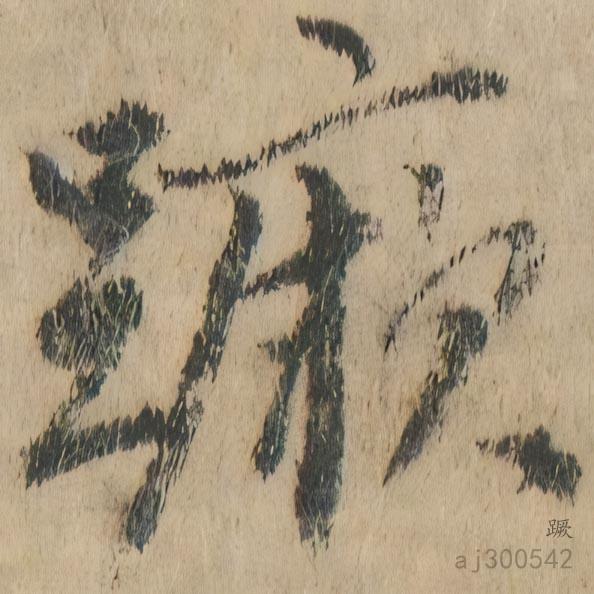 蹶
蹶
aj300542